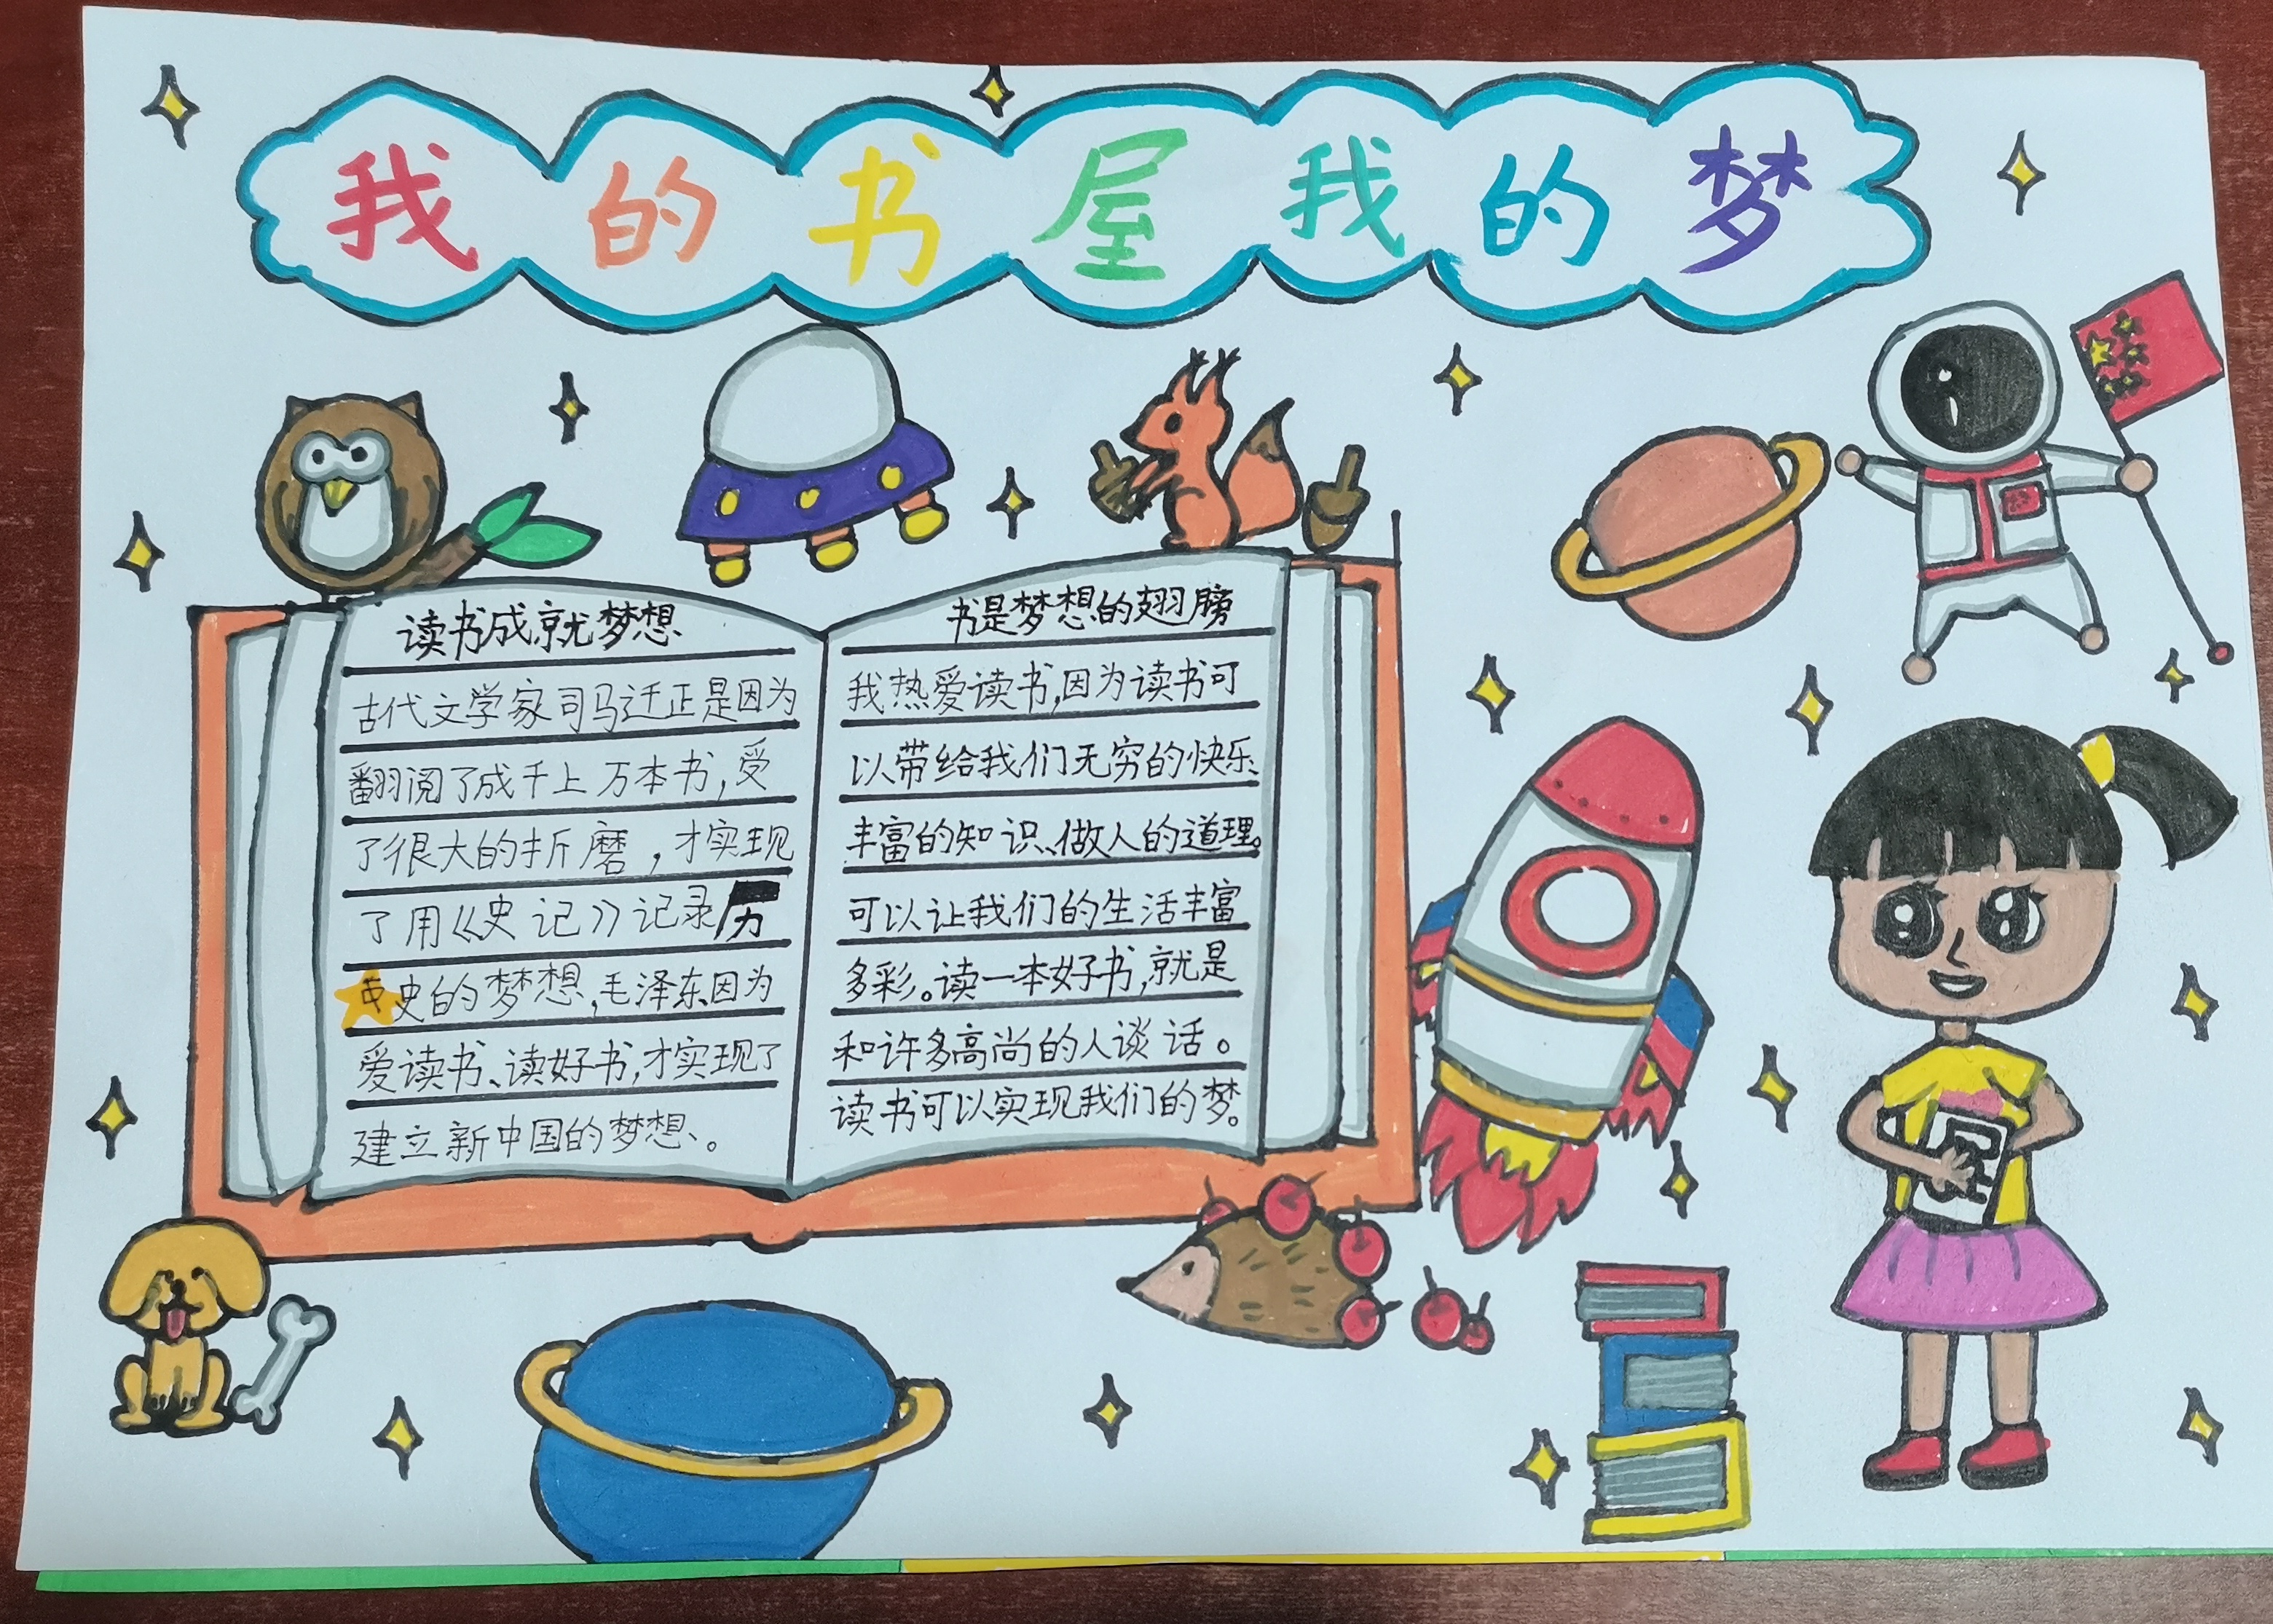 我的书屋我的梦
读书成就梦想
古代文学家司马迁正是因为
翻阅了成千上万本书,受
了很大的折磨,才实现
了用《史记》记录历
史的梦想,毛泽东因为
爱读书、读好书,才实现了
建立新中国的梦想、。
书是梦想的翅膀
我热爱读书,因为读书可
以带给我们无穷的快乐、
丰富的知识、做人的道理。
可以让我们的生活丰富
多彩。读一本好书,就是
和许多高尚的人谈话。
读书可以实现我们的梦。